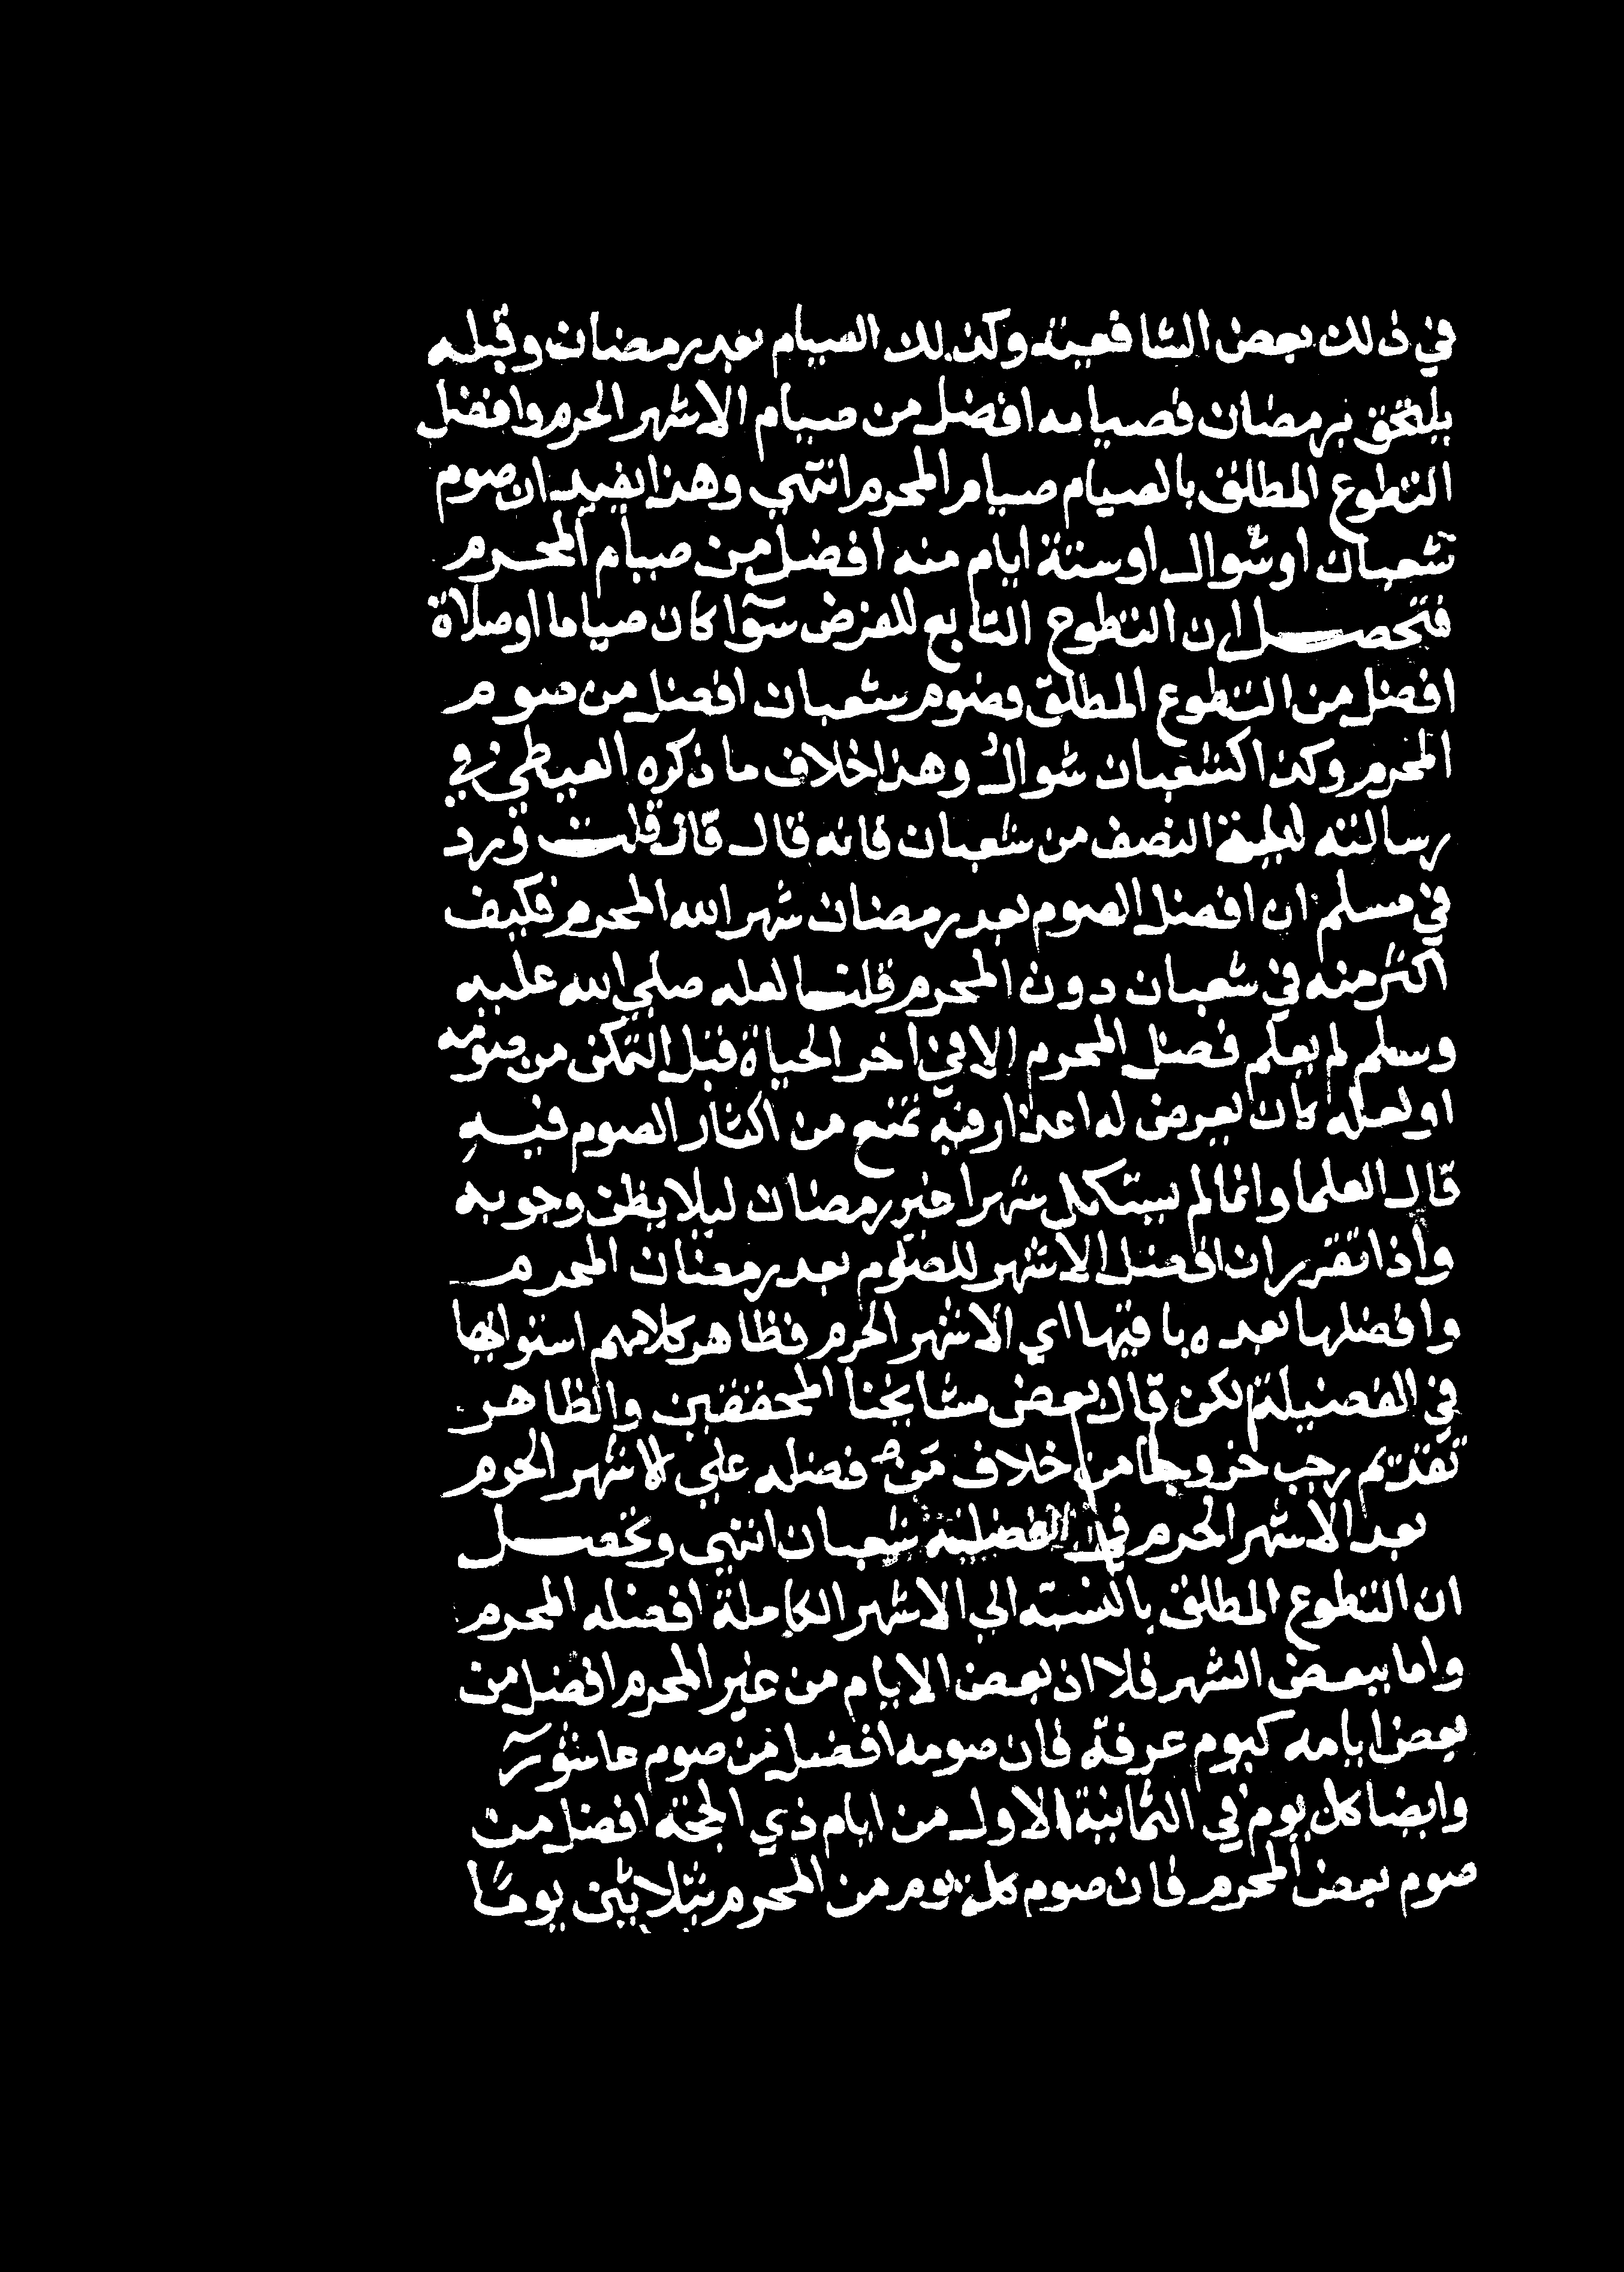 في ذلك بعض الشافعية وكذلك الصيام بعد رمضان وقبله
يلتحق برمضان فصيامه افضل من صيام الاشهر الحرم وافضل
التطوع المطلق بالصيام صيام المحرم انتهي وهذا يفيد ان صوم
شعبان اوشوال اوستة ايام منه افضل من صيام المحرم
فتحصل ان التطوع التابع للفرض سوآ كان صياما اوصلاة
افضل من التطوع المطلق وصوم شعبان افضل من صوم
المحرم وكذا كشعبان شوال وهذا خلاف ما ذكره الغيطي في
رسالته لليلة النصف من شعبان فانه قال فان قلت ورد
في مسلم ان افضل الصوم بعد رمضان شهر الله المحرم فكيف
اكثر منه في شعبان دون المحرم قلت لعله صلي الله عليه
وسلم لم يعلم فضل المحرم الا في اخر الحياة قبل التمكن من صومه
او لعله كان يعرض له اعذار فيه تمنع من اكثار الصوم فيه
قال العلما وانما لم يستكمل شهرا غير رمضان ليلا يظن وجوبه
واذا تقرر ان افضل الاشهر للصوم بعد رمضان المحرم
وافضلها بعده باقيها اي الاشهر الحرم فظاهر كلامهم استوايها
في الفضيلة لكن قال بعض مشايخنا المحققين والظاهر
تقديم رجب خروجا من خلاف من فضله علي الاشهر الحرم
بعد الاشهر الحرم في الفضيلة شعبان انتهي وتحصل
ان التطوع المطلق بالنسبة الي الاشهر الكاملة افضله المحرم
واما ببعض الشهر فلا اذ بعض الايام من غير المحرم افضل من
بعض ايامه كيوم عرفة فان صومه افضل من صوم عاشورآ
وايضا كل يوم في الثمانية الاول من ايام ذي الحجة افضل من
صوم بعض المحرم فان صوم كل يوم من المحرم بثلاثين يوما